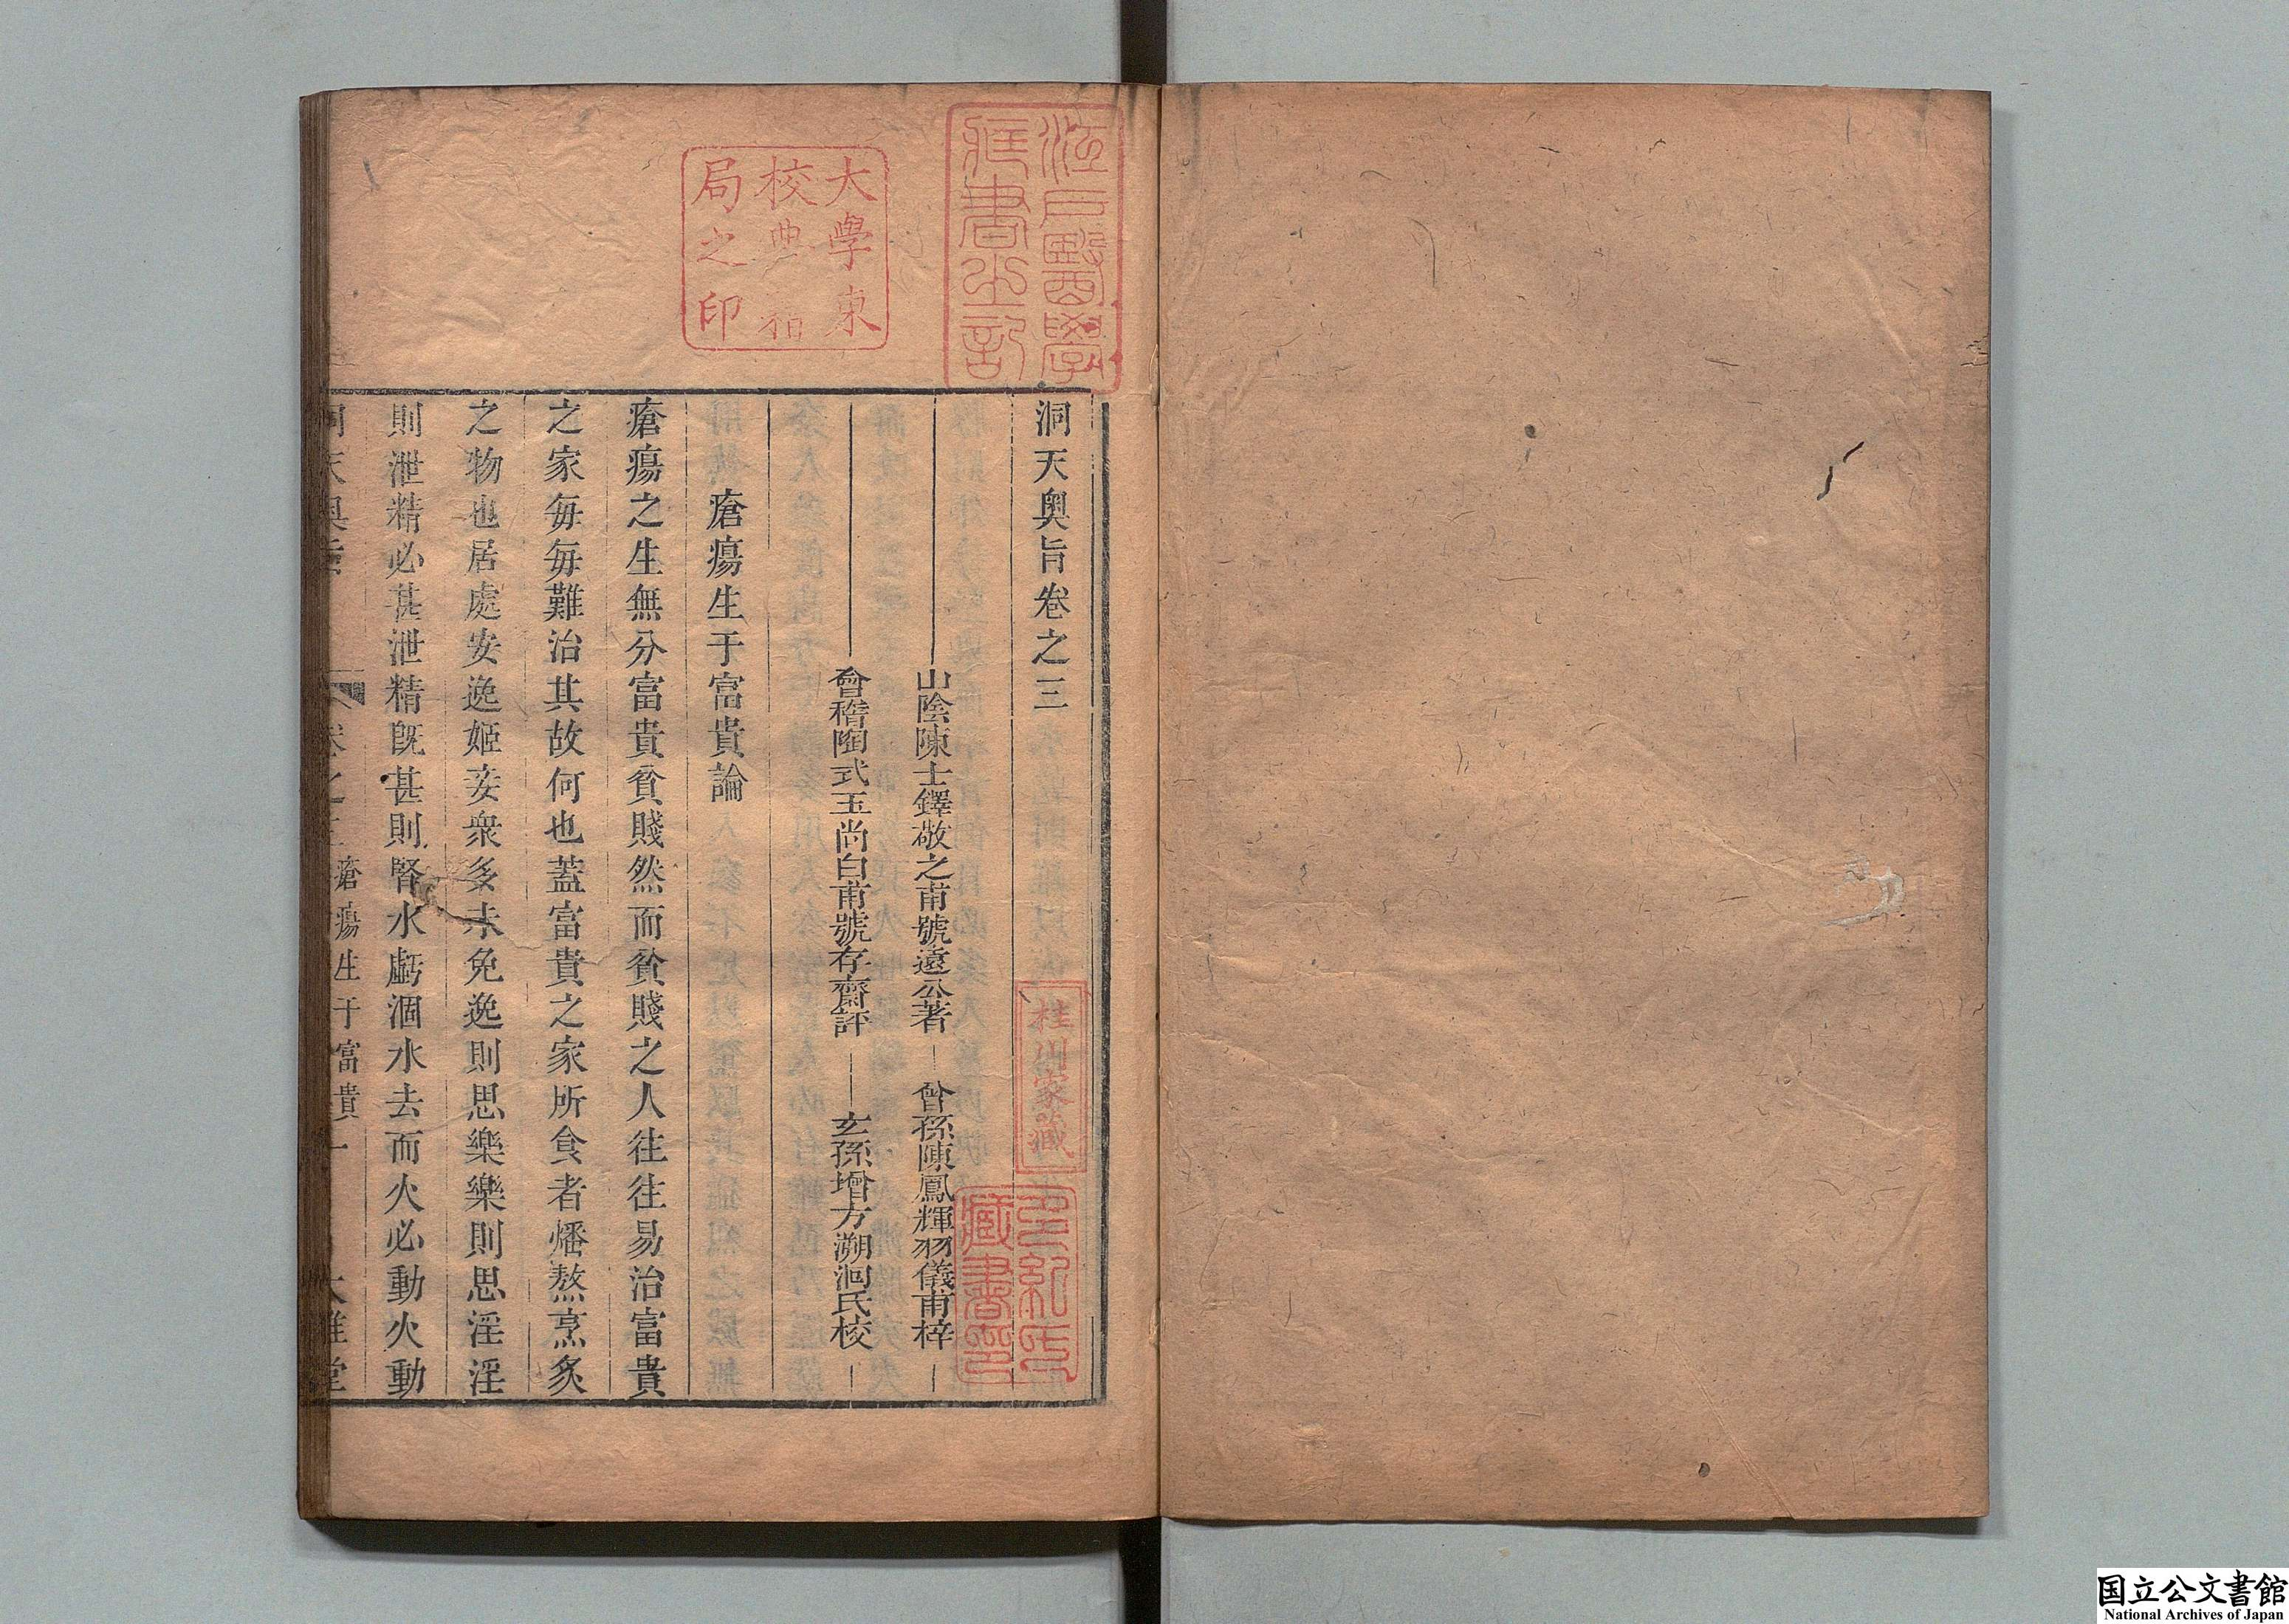 洞天奧旨卷之三
山陰陳士鐸敬之甫號遠公著 曾孫陳鳳輝羽儀甫梓
會稽陶式玉尚白甫號存齋評 玄孫增方溯洄氏校
瘡瘍生于富貴論
瘡瘍之生無分富貴貧賤然而貧賤之人往往易治富貴
之家每每難治其故何也蓋富貴之家所食者燔熬烹炙
之物也居處安逸姬妾衆多未免逸則思樂樂則思淫淫
則泄精必甚泄精既甚則腎水虧涸水去而火必動火動
洞天奧旨 卷之三 瘡瘍生于富貴 一 大雅堂
江戶醫學
藏書之記
大學東
校典籍
局之印
桂川家藏
藏書
国立公文書館
National Archives of Japan